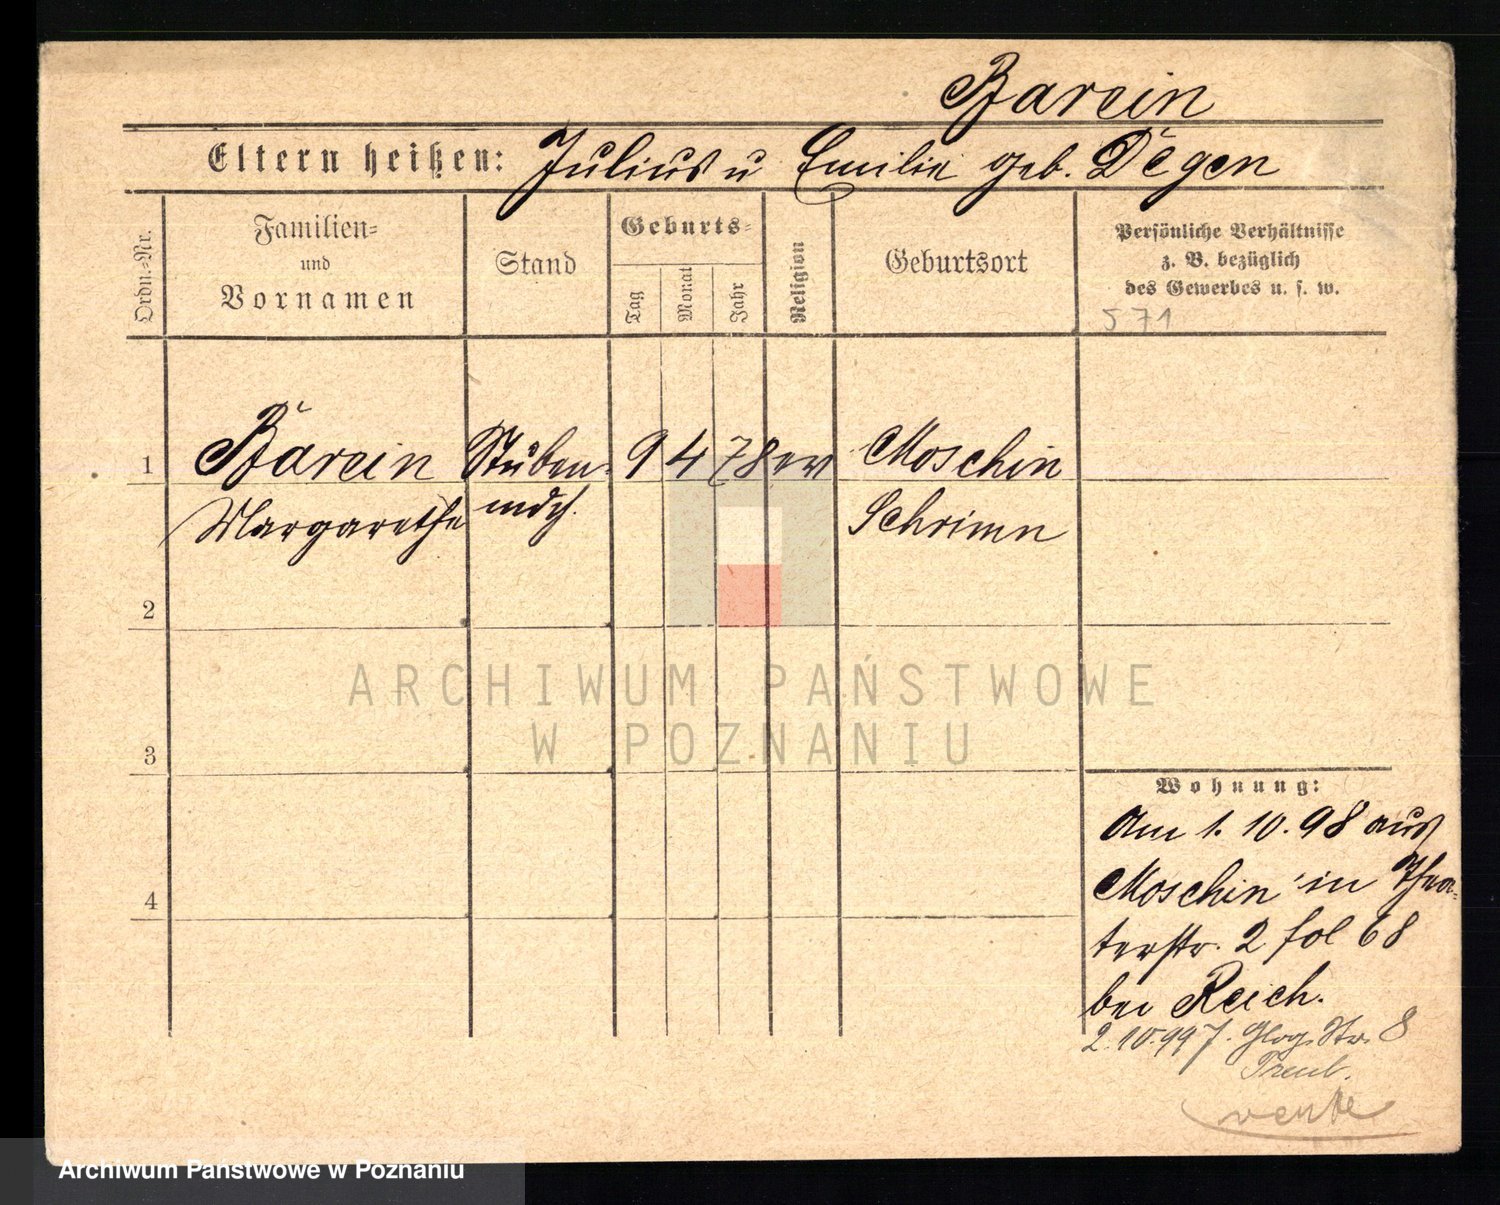 Barein
Eltern heißen: Julius u Emilie geb. Degen
Ordn.-Nr.
Familien-
und
Vornamen
Stand
Geburts-
Tag
Monat
Jahr
Religion
Geburtsort
Persönliche Verhältnisse
z. B. bezüglich
des Gewerbes u. s. w.
571
1 Barein Stuben- 9 4 78 ev Moschin
Margarethe mdch. Schrimm
2
ARCHIWUM PAŃSTWOWE
W POZNANIU
3
Wohnung:
Am 1. 10. 98 aus
Moschin in Thea-
4
terstr. 2 fol 68
bei Reich.
2.10.99 Glog. Str. 8
Archiwum Państwowe w Poznaniu